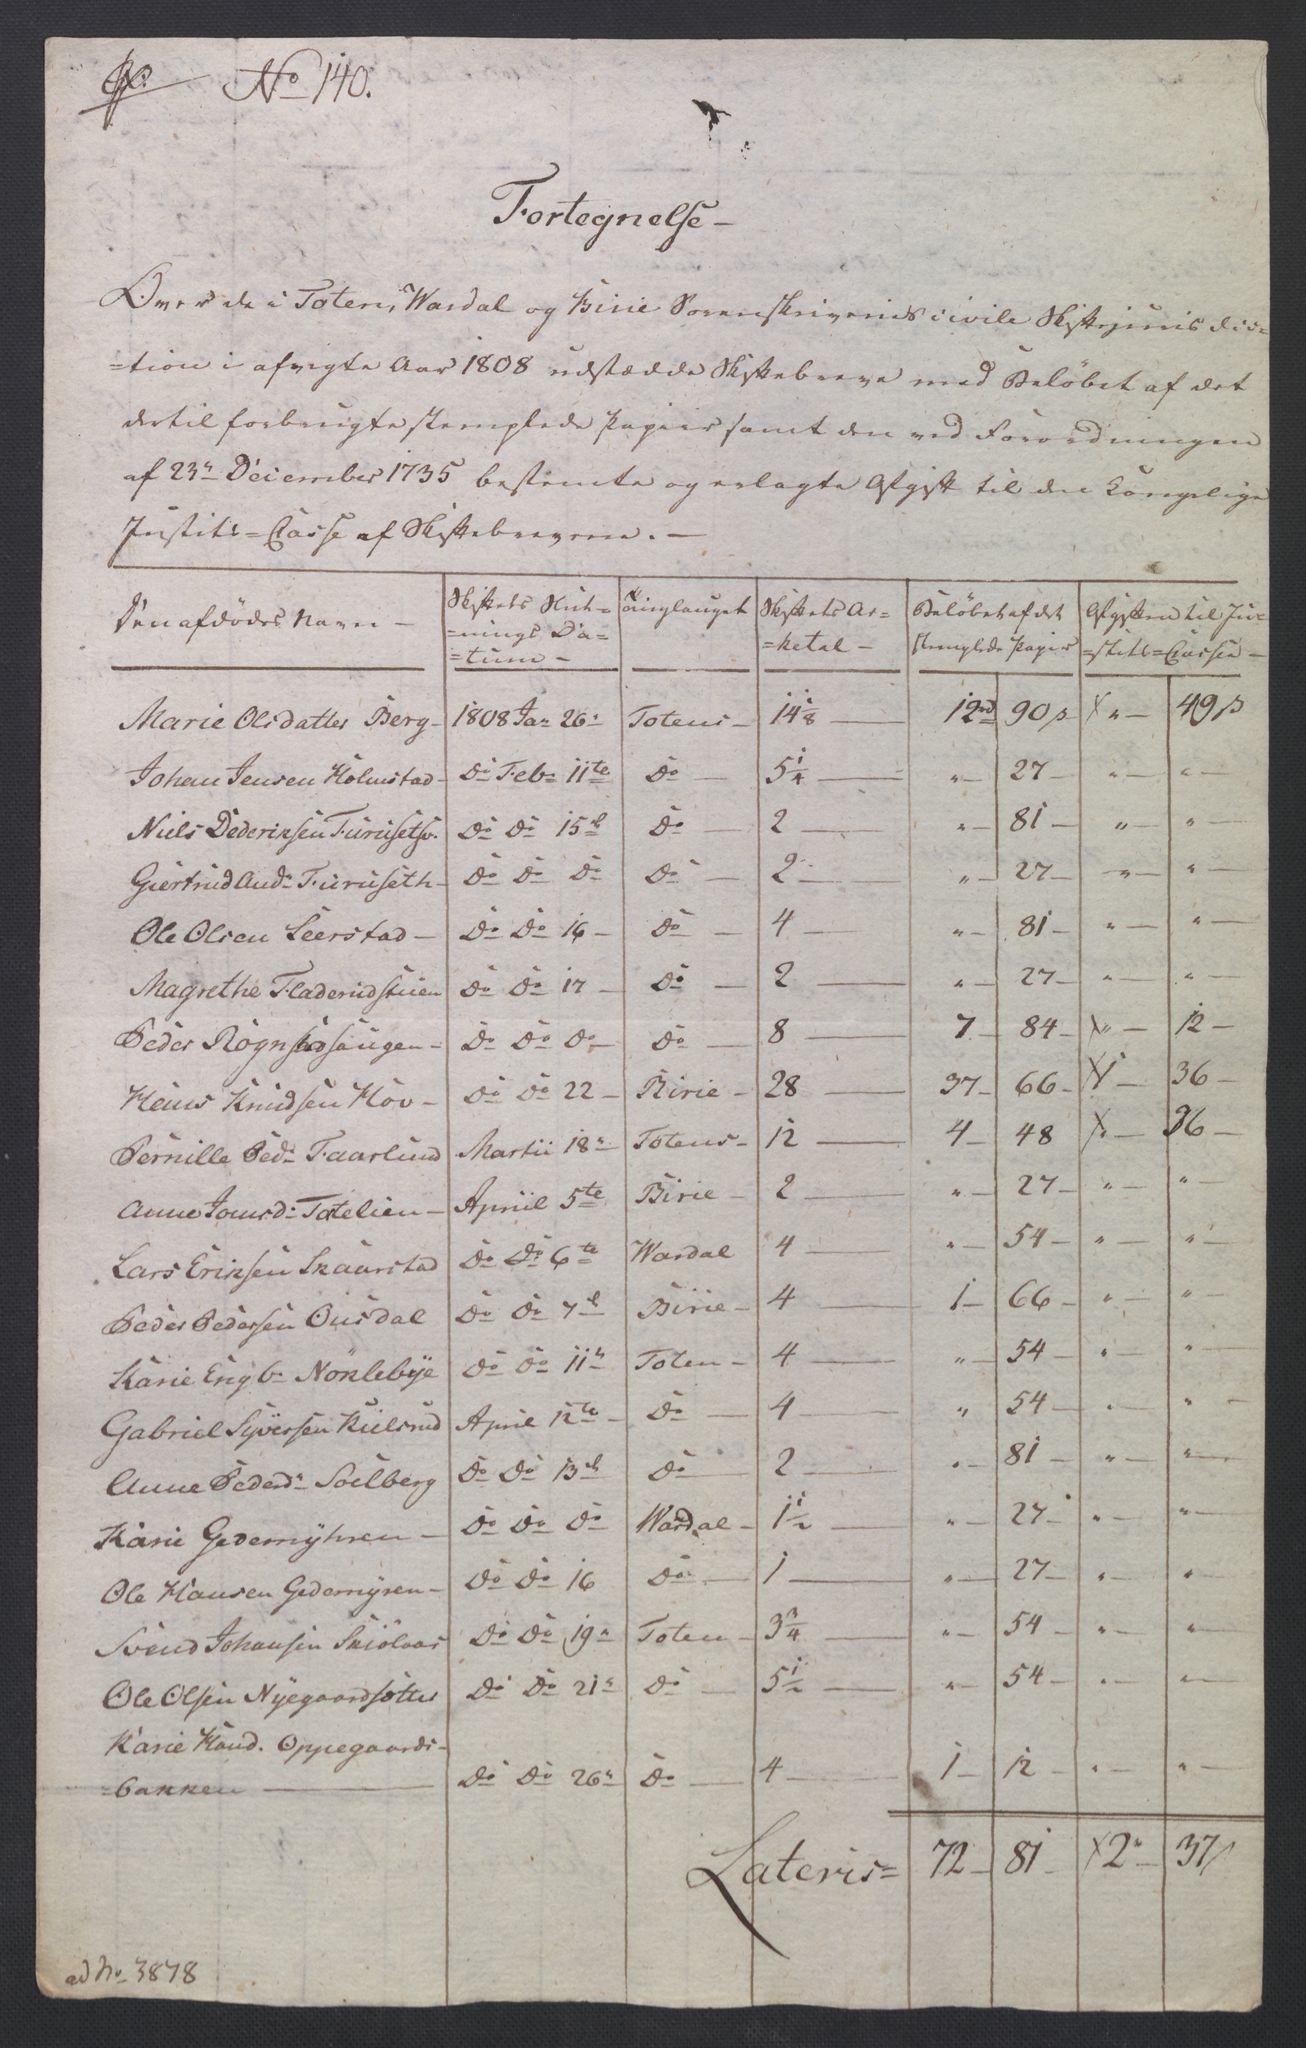 No 140.
Fortegnelse –
Over de i Totens, Wardal og Birie Sorenskriveries civile Skiftejurisdic=
=tion i afvigte Aar 1808 udstædde Skiftebreve med Beløbet af det
dertil forbrugte stemplede Papiir samt den ved Forordningen
af 23de December 1735 bestemte og erlagte Afgift til den Kongelige
Justits=Casse af Skiftebrevene. –
Den afdødes Navn – | Skiftets Slut=nings Da=tum – | Tinglauget | Skiftets Ar=ketal – | Beløbet af det stemplede Papiir | Afgiften til Ju=stits=Cassen –
Marie Olsdatter Berg – 1808 Jan 26 Totens – 14 1/8 — 12 rd 90 s X " – 49 s
Johan Jensen Holmstad – Do Feb 11te Do — 5 1/4 — " – 27 – " – " –
Niels Dederiksen Furusets. Do Do 15d Do — 2 — " – 81 – " – " –
Giertrud And. Furuseth – Do Do Do Do — 2 — " – 27 – " – " –
Ole Olsen Leerstad – Do Do 16 – Do — 4 — " – 81 – " – " –
Magrethe Fladerudstuen Do Do 17 – Do — 2 — " – 27 – " – " –
Peder Rognstadsaugen – Do Do Do Do — 8 — 7 – 84 – X " – 12 –
Hans Knudsen Hov – Do Do 22 – Birie – 28 — 37 – 66 – X 1 – 36 –
Pernille Ped. Faarlund Martii 18 Totens – 12 — 4 – 48 X " – 36 –
Anne Jonsd. Totelien – Apriil 5te Birie – 2 — " – 27 – " – " –
Lars Eriksen Skaarstad Do Do 6te Wardal 4 — " – 54 – " – " –
Peder Pedersen Ousdal Do Do 7d Birie – 4 — 1 – 66 – " – " –
Karie Engb. Nøklebye Do Do 11 Toten – 4 — " – 54 – " – " –
Gabriel Syversen Kielsrud April 12te – Do — 4 — " 54 – " – " –
Anne Pedersd. Soelberg Do Do 13d Do — 2 — " – 81 – " – " –
Karie Gedemyhren – Do Do Do Wardal – 1 1/2 — " – 27 – " – " –
Ole Hansen Gedemyren – Do Do 16 Do — 1 — " – 27 – " – " –
Svend Johansen Skiølaas Do Do 19 Toten – 3 3/4 — " – 54 – " – " –
Ole Olsen Nyegaardsætter Do Do 21 Do — 5 1/2 — " – 54 – " – " –
Karie Hand. Oppegaards=
=bakken — Do Do 26 Do — 4 — 1 – 12 – " – " –
Lateris = 72 – 81 – X 2 " – 37 s
ad No 3878